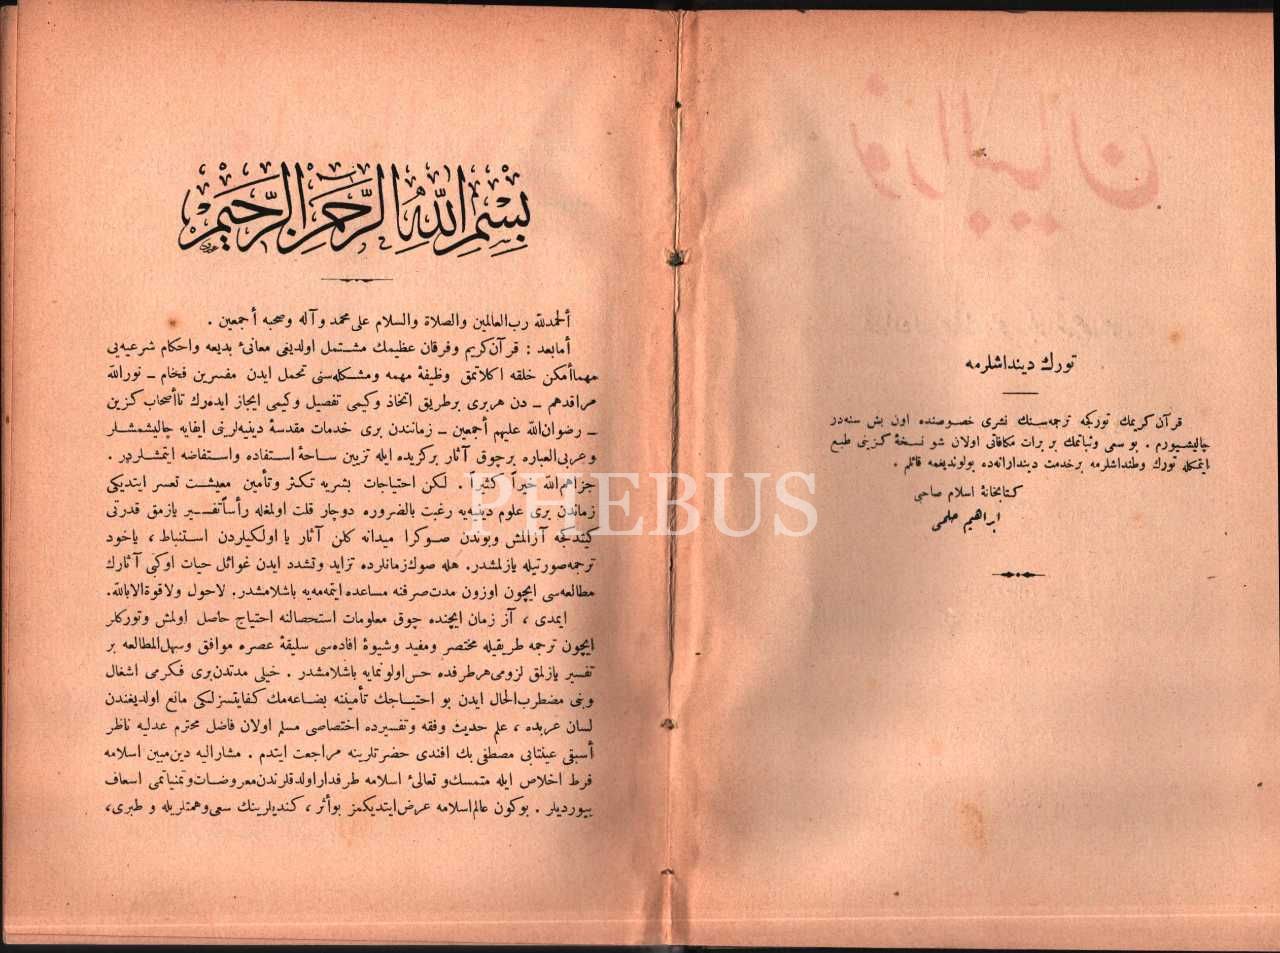 تورك دينداشلرمه
قرآن كريمك توركجه ترجمه‌سنك نشرى خصوصنده اون بش سنه‌در
چاليشيورم . بو سعى وثباتمك بر برات مكافاتى اولان شو نسخهٔ كزينى طبع
ايتمكله تورك وطنداشلرمه برخدمت ديندارانه‌ده بولونديغمه قائلم .
كتابخانهٔ اسلام صاحبى
ابراهيم حلمى
بسم الله الرحمن الرحيم
ألحمدلله رب‌العالمين والصلاة والسلام على محمد وآله وصحبه أجمعين .
أمابعد : قرآن‌كريم وفرقان عظيمك مشتمل اولديغى معانئ بديعه واحكام شرعيه‌يى
مهماأمكن خلقه اكلاتمق وظيفهٔ مهمه ومشكله‌سنى تحمل ايدن مفسرين فخام ــ نورالله
مراقدهم ــ دن هربرى برطريق اتخاذ وكيمى تفصيل وكيمى ايجاز ايده‌رك تاأصحاب كزين
ــ رضوان‌الله عليهم أجمعين ــ زمانندن برى خدمات مقدسهٔ دينيه‌لرينى ايفايه چاليشمشلر
وعربى‌العباره برچوق آثار بركزيده ايله تزيين ساحهٔ استفاده واستفاضه ايتمشلردر .
جزاهم‌الله خيراً كثيراً . لكن احتياجات بشريه تكثر وتأمين معيشت تعسر ايتديكى
زماندن برى علوم دينيه‌يه رغبت بالضروره دوچار قلت اولمغله رأساً تفسير يازمق قدرتى
كيتدكجه آزالمش وبوندن صوكرا ميدانه كلن آثار يا اولكيلردن استنباط ، ياخود
ترجمه صورتيله يازلمشدر. هله صوك زمانلرده تزايد وتشدد ايدن غوائل حيات اوكبى آثارك
مطالعه‌سى ايچون اوزون مدت صرفنه مساعده ايتمه‌مه‌يه باشلامشدر. لاحول ولاقوة الابالله.
ايمدى ، آز زمان ايچنده چوق معلومات استحصالنه احتياج حاصل اولمش وتوركلر
ايچون ترجمه طريقيله مختصر ومفيد وشيوهٔ افاده‌سى سليقهٔ عصره موافق وسهل‌المطالعه بر
تفسير يازلمق لزومى هرطرفده حس اولونمايه باشلامشدر . خيلى مدتدن‌برى فكرمى اشغال
وبنى مضطرب‌الحال ايدن بو احتياجك تأميننه بضاعه‌مك كفايتسزلكى مانع اولديغندن
لسان عربده ، علم حديث وفقه وتفسيرده اختصاصى مسلم اولان فاضل محترم عدليه ناظر
أسبقى عينتابى مصطفى بك افندى حضرتلرينه مراجعت ايتدم . مشاراليه دين‌مبين اسلامه
فرط اخلاص ايله متمسك و تعالئ اسلامه طرفدار اولدقلرندن معروضات وتمنياتمى اسعاف
بيورديلر . بوكون عالم‌اسلامه عرض ايتديكمز بوأثر ، كنديلرينك سعى وهمتلريله و طبرى،
PHEBUS